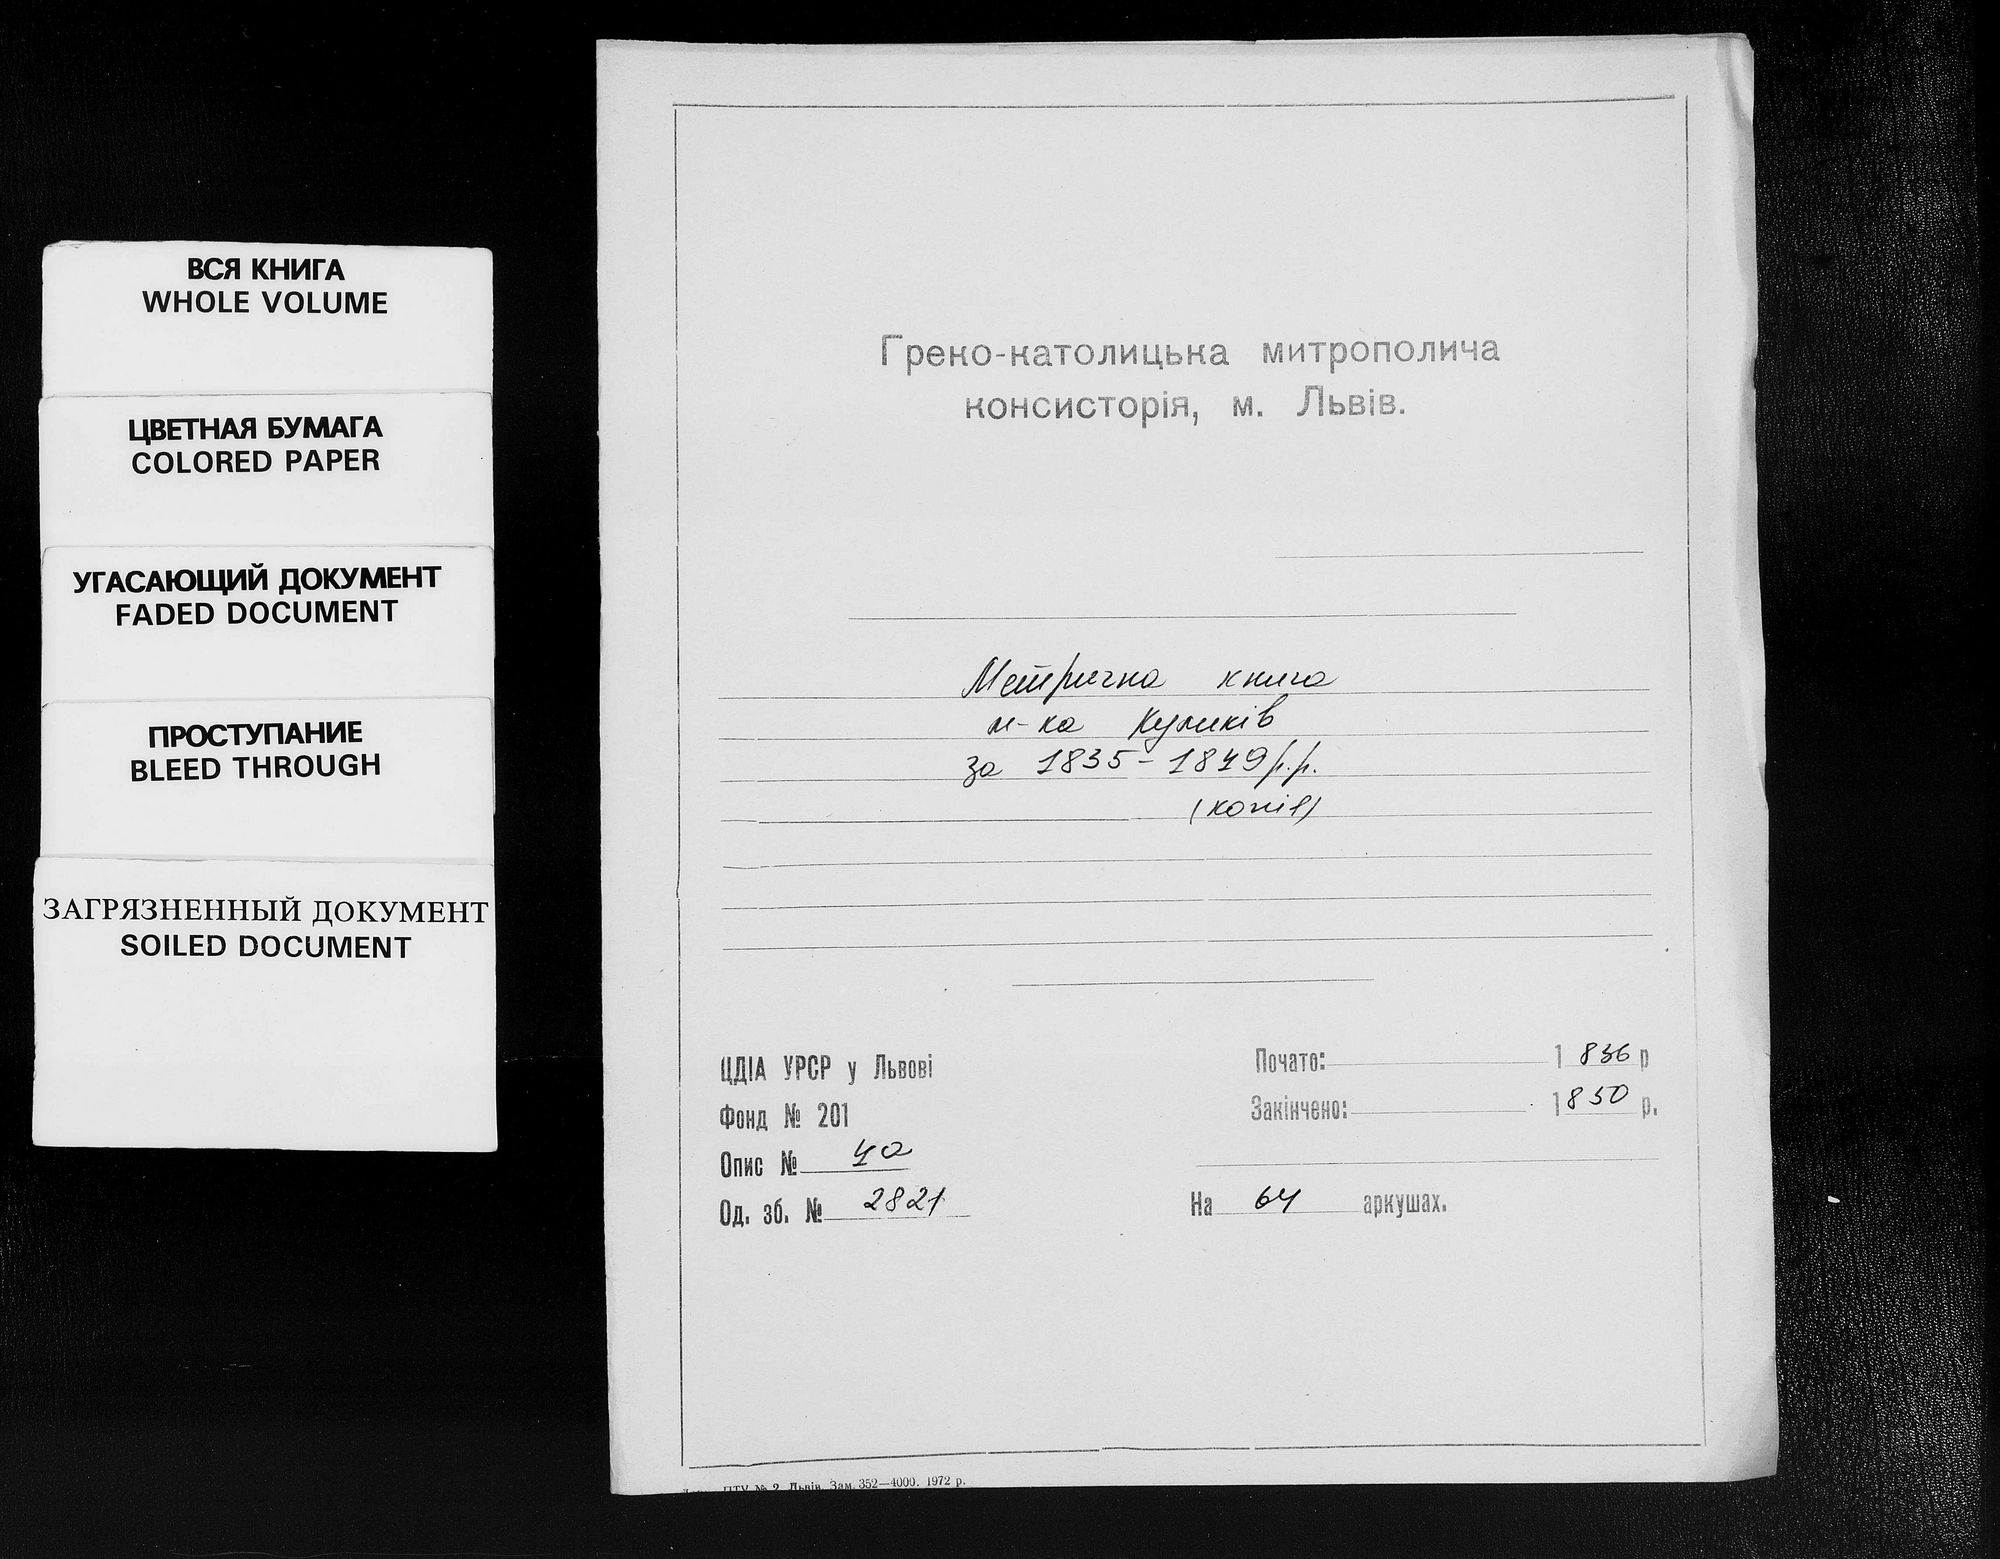 ВСЯ КНИГА
WHOLE VOLUME
ЦВЕТНАЯ БУМАГА
COLORED PAPER
УГАСАЮЩИЙ ДОКУМЕНТ
FADED DOCUMENT
ПРОСТУПАНИЕ
BLEED THROUGH
ЗАГРЯЗНЕННЫЙ ДОКУМЕНТ
SOILED DOCUMENT
Греко-католицька митрополича
консисторія, м. Львів.
Метрична книга
м-ка Куликів
за 1835-1849 р.р.
(копія)
ЦДІА УРСР у Львові
Фонд № 201
Опис № 4а
Од. зб. № 2821
Почато: 1836 р
Закінчено: 1850 р.
На 64 аркушах.
ПТУ № 2 Львів. Зам. 352—4000. 1972 р.